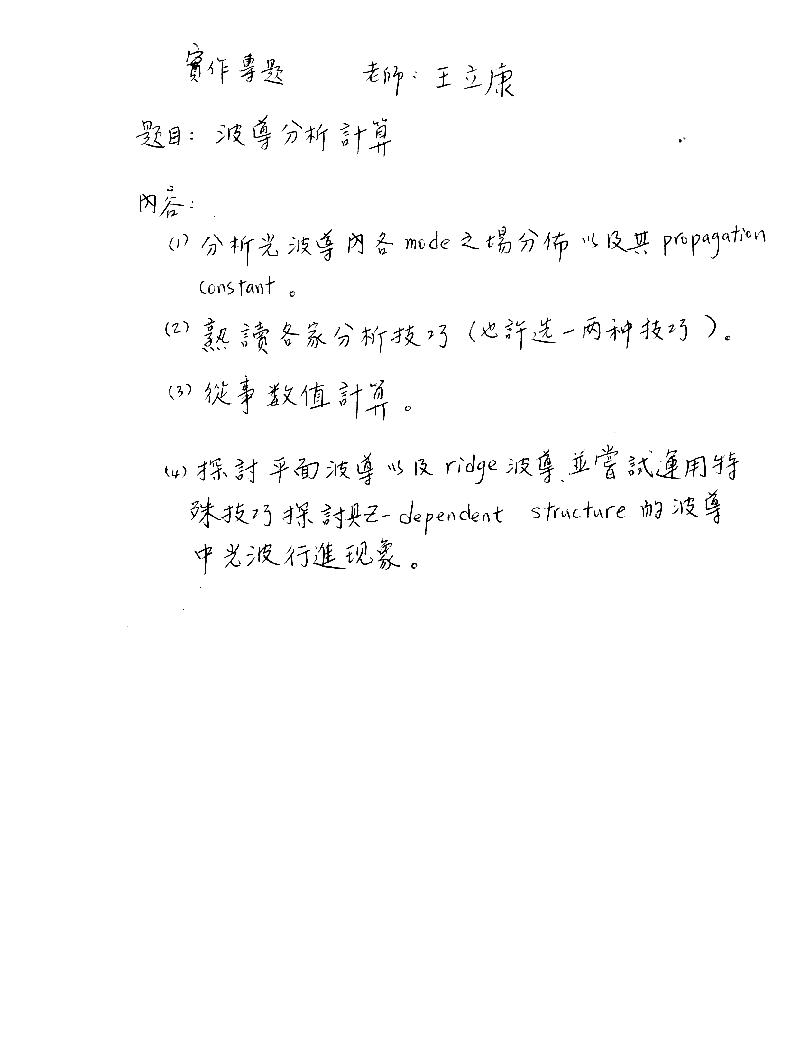 實作專題 老師：王立康
题目：波導分析計算
內容：
(1) 分析光波導內各 mode 之場分佈以及其 propagation
constant。
(2) 熟讀各家分析技巧（也許选一两种技巧）。
(3) 從事数值計算。
(4) 探討平面波導以及 ridge 波導，並嘗試運用特
殊技巧探討具Z-dependent structure 的波導
中光波行進现象。